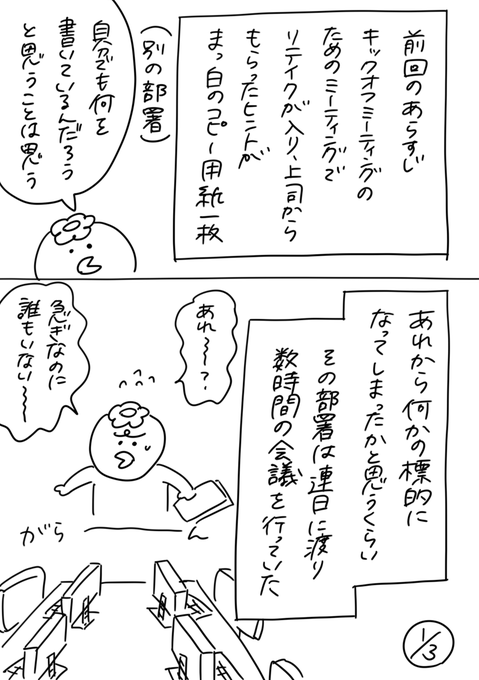 前回のあらすじ
キックオフミーティングの
ためのミーティングで
リテイクが入り、上司から
もらったヒントが
まっ白のコピー用紙一枚
(別の部署)
自分でも何を
書いているんだろう
と思うことは思う
あれから何かの標的に
なってしまったかと思うくらい
その部署は連日に渡り
数時間の会議を行っていた
あれ〜〜?
急ぎなのに
誰もいない〜〜
がら――――ん
1/3